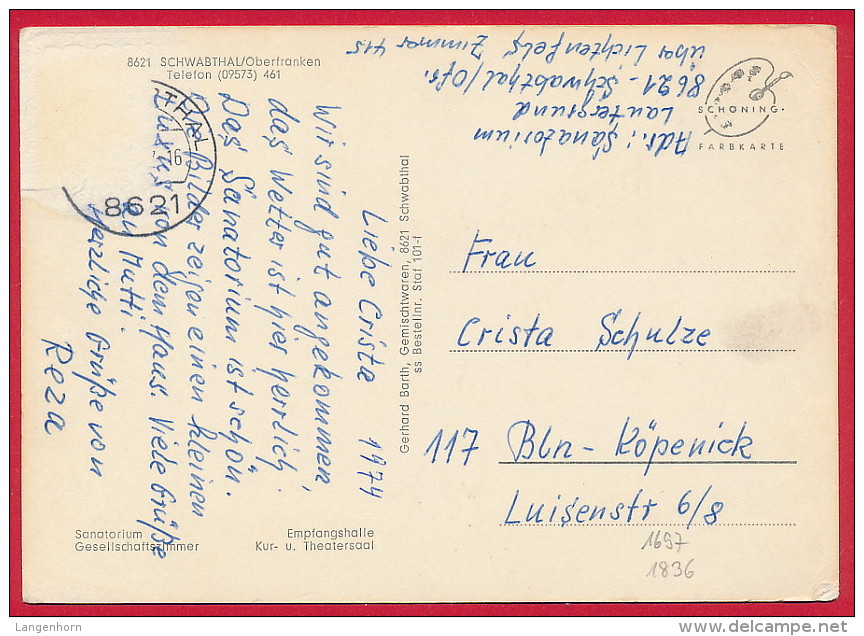 8621 SCHWABTHAL/Oberfranken
Telefon (09573) 461
THAL
16
8621
Adr.: Sanatorium
Lautergrund
8621 - Schwabthal/Ofr.
über Lichtenfels Zimmer 415
SCHÖNING·
FARBKARTE
Liebe Crista 1974
Wir sind gut angekommen,
das Wetter ist hier herrlich.
Das Sanatorium ist schön.
Die Bilder zeigen einen kleinen
Luxus von dem Haus. Viele Grüße
an Mutti.
Herzliche Grüße von
Reza
Gerhard Barth, Gemischtwaren, 8621 Schwabthal
ss Bestellnr. Staf 101-f
Frau
Crista Schulze
117 Bln - Köpenick
Luisenstr 6/8
1697
1836
Sanatorium
Gesellschaftszimmer
Empfangshalle
Kur- u. Theatersaal
Langenhorn
delcampe.net